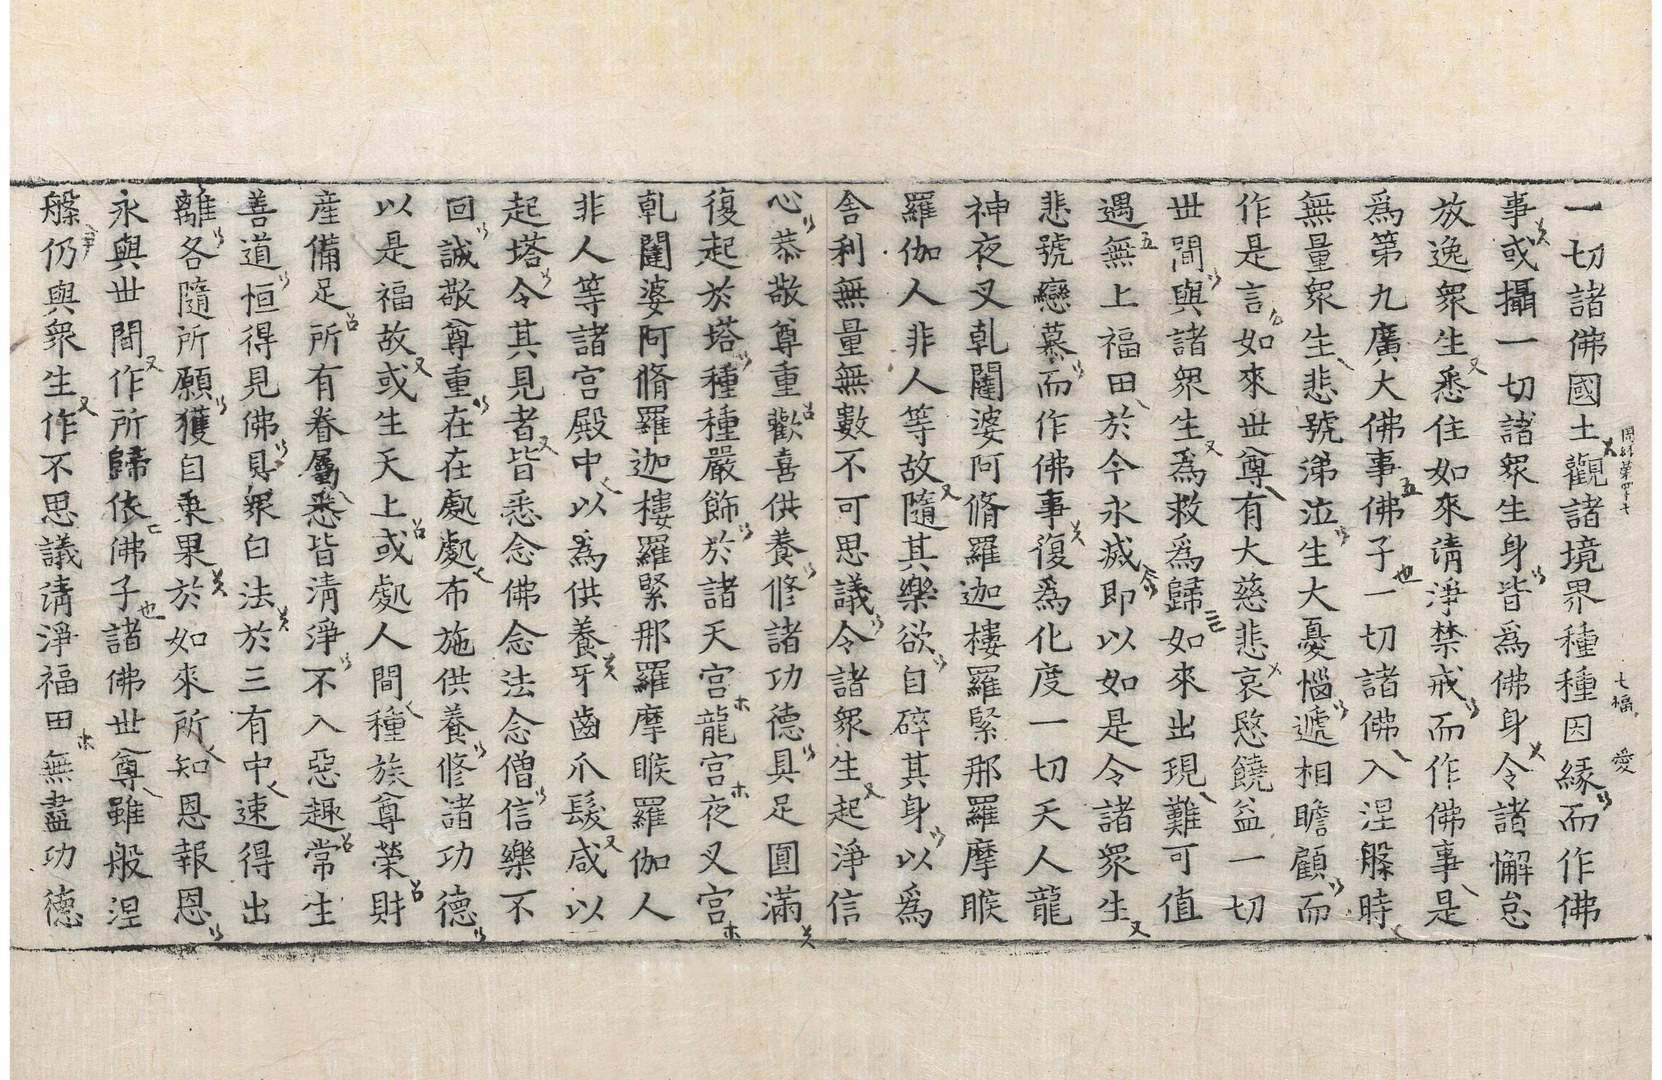 一切諸佛國土觀諸境界種種因緣而作佛
事或攝一切諸眾生身皆爲佛身令諸懈怠
放逸眾生悉住如來清淨禁戒而作佛事是
爲第九廣大佛事佛子一切諸佛入涅槃時
無量眾生悲號涕泣生大憂惱遞相瞻顧而
作是言如來世尊有大慈悲哀愍饒益一切
世間與諸眾生爲救爲歸如來出現難可值
遇無上福田於今永滅即以如是令諸眾生
悲號戀慕而作佛事復爲化度一切天人龍
神夜叉乹闥婆阿脩羅迦樓羅緊那羅摩睺
羅伽人非人等故隨其樂欲自碎其身以爲
舍利無量無數不可思議令諸眾生起淨信
心恭敬尊重歡喜供養修諸功德具足圓滿
復起於塔種種嚴飾於諸天宮龍宮夜叉宮
乹闥婆阿脩羅迦樓羅緊那羅摩睺羅伽人
非人等諸宮殿中以爲供養牙齒爪髮咸以
起塔令其見者皆悉念佛念法念僧信樂不
回誠敬尊重在在處處布施供養修諸功德
以是福故或生天上或處人間種族尊榮財
產備足所有眷屬悉皆清淨不入惡趣常生
善道恒得見佛具眾白法於三有中速得出
離各隨所願獲自乗果於如來所知恩報恩
永與世間作所歸依佛子諸佛世尊雖般涅
槃仍與眾生作不思議清淨福田無盡功德